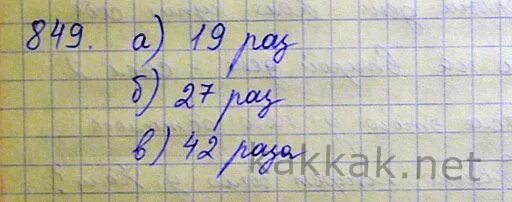 849. а) 19 раз
б) 27 раз
в) 42 раза
kakkak.net